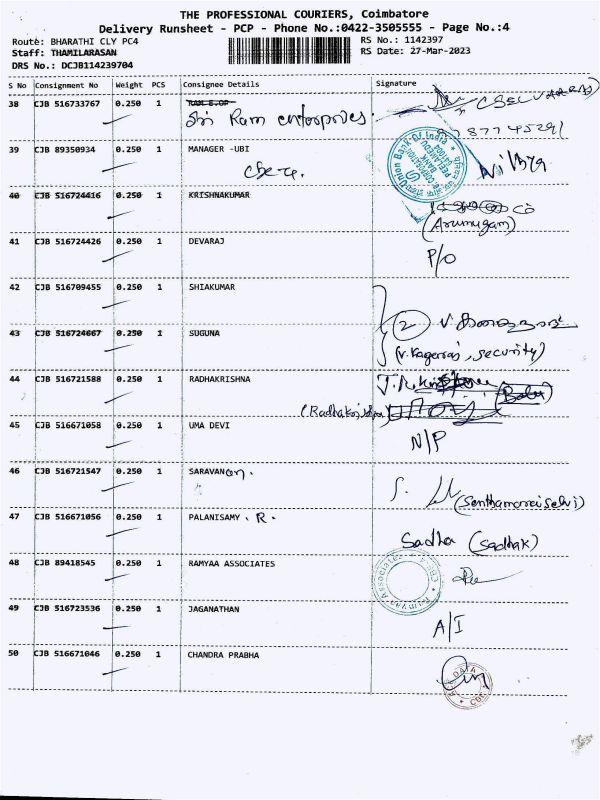 THE PROFESSIONAL COURIERS, Coimbatore
Delivery Runsheet - PCP - Phone No.:0422-3505555 - Page No.:4
Route: BHARATHI CLY PC4
RS No.: 1142397
Staff: THAMILARASAN
RS Date: 27-Mar-2023
DRS No.: DCJB114239704
S No Consignment No Weight PCS Consignee Details Signature
38 CJB 516733767 0.250 1
Sri Ram enterprises.
39 CJB 89350934 0.250 1 MANAGER -UBI
Union Bank Of India
40 CJB 516724416 0.250 1 KRISHNAKUMAR
(Arumugam)
41 CJB 516724426 0.250 1 DEVARAJ P/O
42 CJB 516709455 0.250 1 SHIAKUMAR
2
43 CJB 516724667 0.250 1 SUGUNA
security)
44 CJB 516721588 0.250 1 RADHAKRISHNA
45 CJB 516671058 0.250 1 UMA DEVI
N/P
46 CJB 516721547 0.250 1 SARAVANan.
47 CJB 516671056 0.250 1 PALANISAMY . R.
Sadha (Sadhak)
48 CJB 89418545 0.250 1 RAMYAA ASSOCIATES
49 CJB 516723536 0.250 1 JAGANATHAN
A/I
50 CJB 516671046 0.250 1 CHANDRA PRABHA